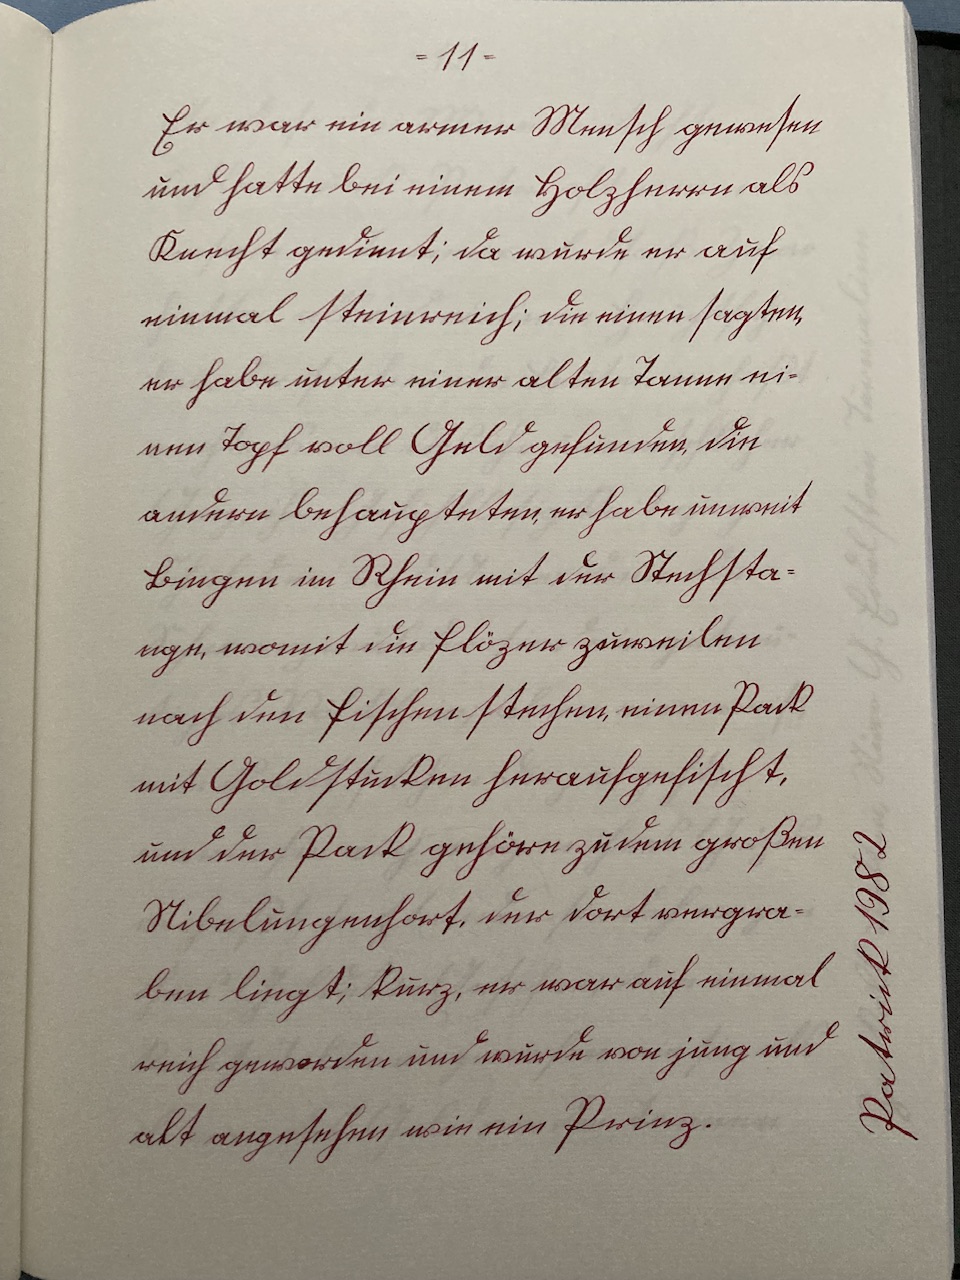 =11=
Er war ein armer Mensch gewesen
und hatte bei einem Holzherrn als
Knecht gedient; da wurde er auf
einmal steinreich; die einen sagten,
er habe unter einer alten Tanne ei=
nen Topf voll Geld gefunden, die
andern behaupteten, er habe unweit
Bingen im Rhein mit der Stechsta=
nge, womit die Flözer zuweilen
nach den Fischen stechen, einen Pack
mit Goldstücken heraufgefischt,
und der Pack gehöre zu dem großen
Nibelungenhort, der dort vergra=
ben liegt; kurz, er war auf einmal
reich geworden und wurde von jung und
alt angesehen wie ein Prinz.
1982